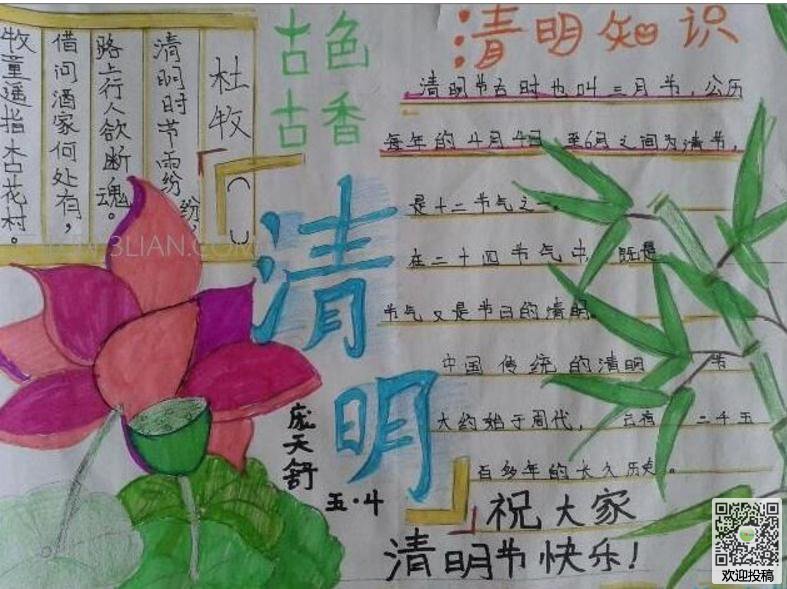 杜牧
清明时节雨纷纷，
路上行人欲断魂。
借问酒家何处有，
牧童遥指杏花村。
古色
古香
清明
庞天舒
五·4
清明知识
清明节古时也叫三月节，公历
每年的4月4日至6日之间为清节，
是十二节气之一。
在二十四节气中，既是
节气又是节日的清明。
中国传统的清明节
大约始于周代，二千五
百多年的长久历史。
祝大家
清明节快乐！
3LIAN.COM
欢迎投稿